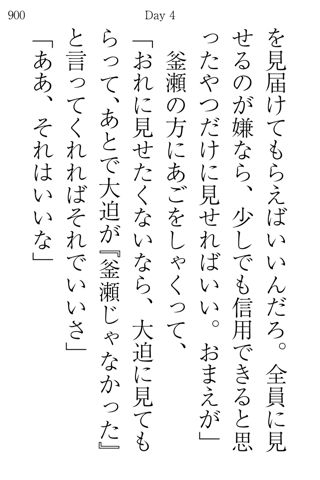 900
Day 4
を見届けてもらえばいいんだろ。全員に見
せるのが嫌なら、少しでも信用できると思
ったやつだけに見せればいい。おまえが」
釜瀬の方にあごをしゃくって、
「おれに見せたくないなら、大迫に見ても
らって、あとで大迫が『釜瀬じゃなかった』
と言ってくれればそれでいいさ」
「ああ、それはいいな」